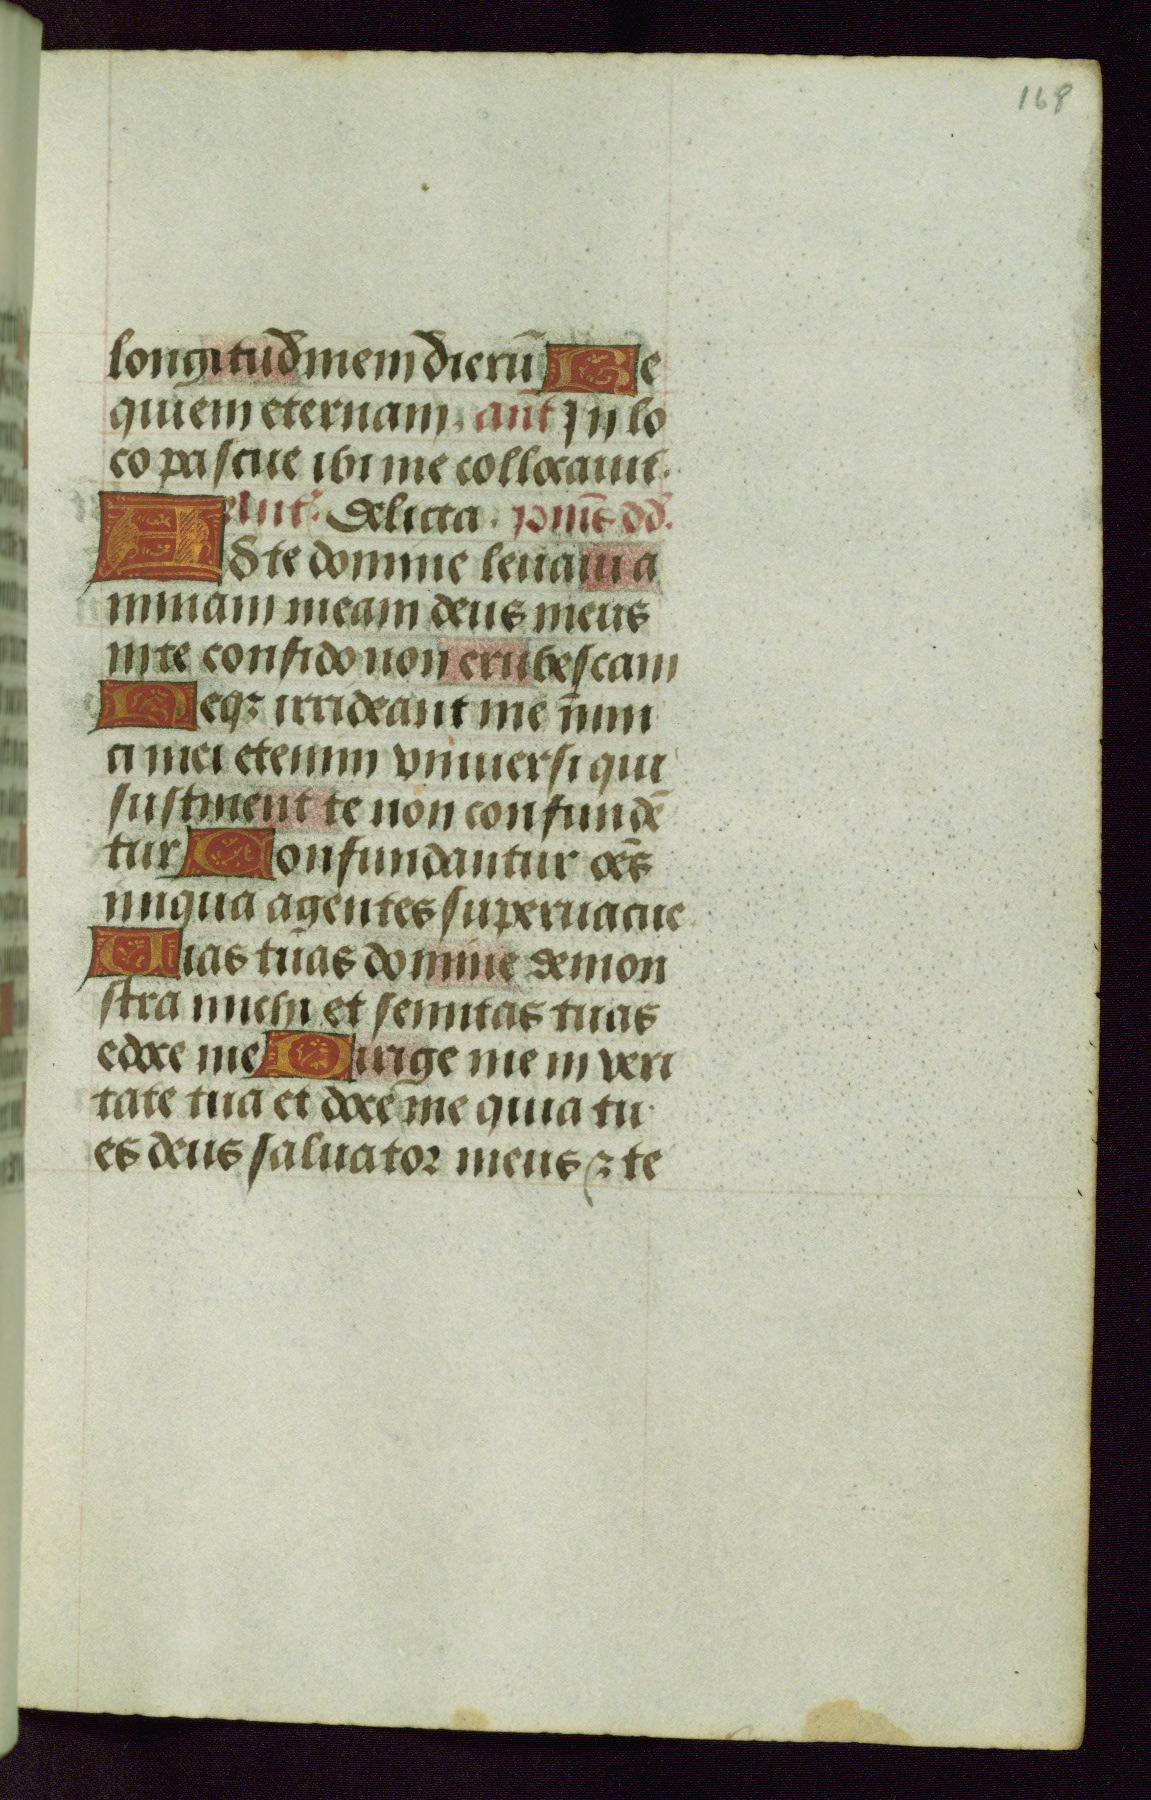 168
longitudinem dierū Re
quiem eternam. añt In lo
co pascue ibi me collocauit.
Añt. delicta. p̄mūs dd̄.
AD te domine leuaui a
nimam meam deus meus
in te confido non erubescam
Neqꝫ irrideant me inim
ci mei etenim vniuersi qui
sustinent te non confundē
tur Confundantur oēs
iniqua agentes superuacue
Uias tuas domine demon
stra michi et semitas tuas
edoce me Dirige me in veri
tate tua et doce me quia tu
es deus saluator meus ⁊ te